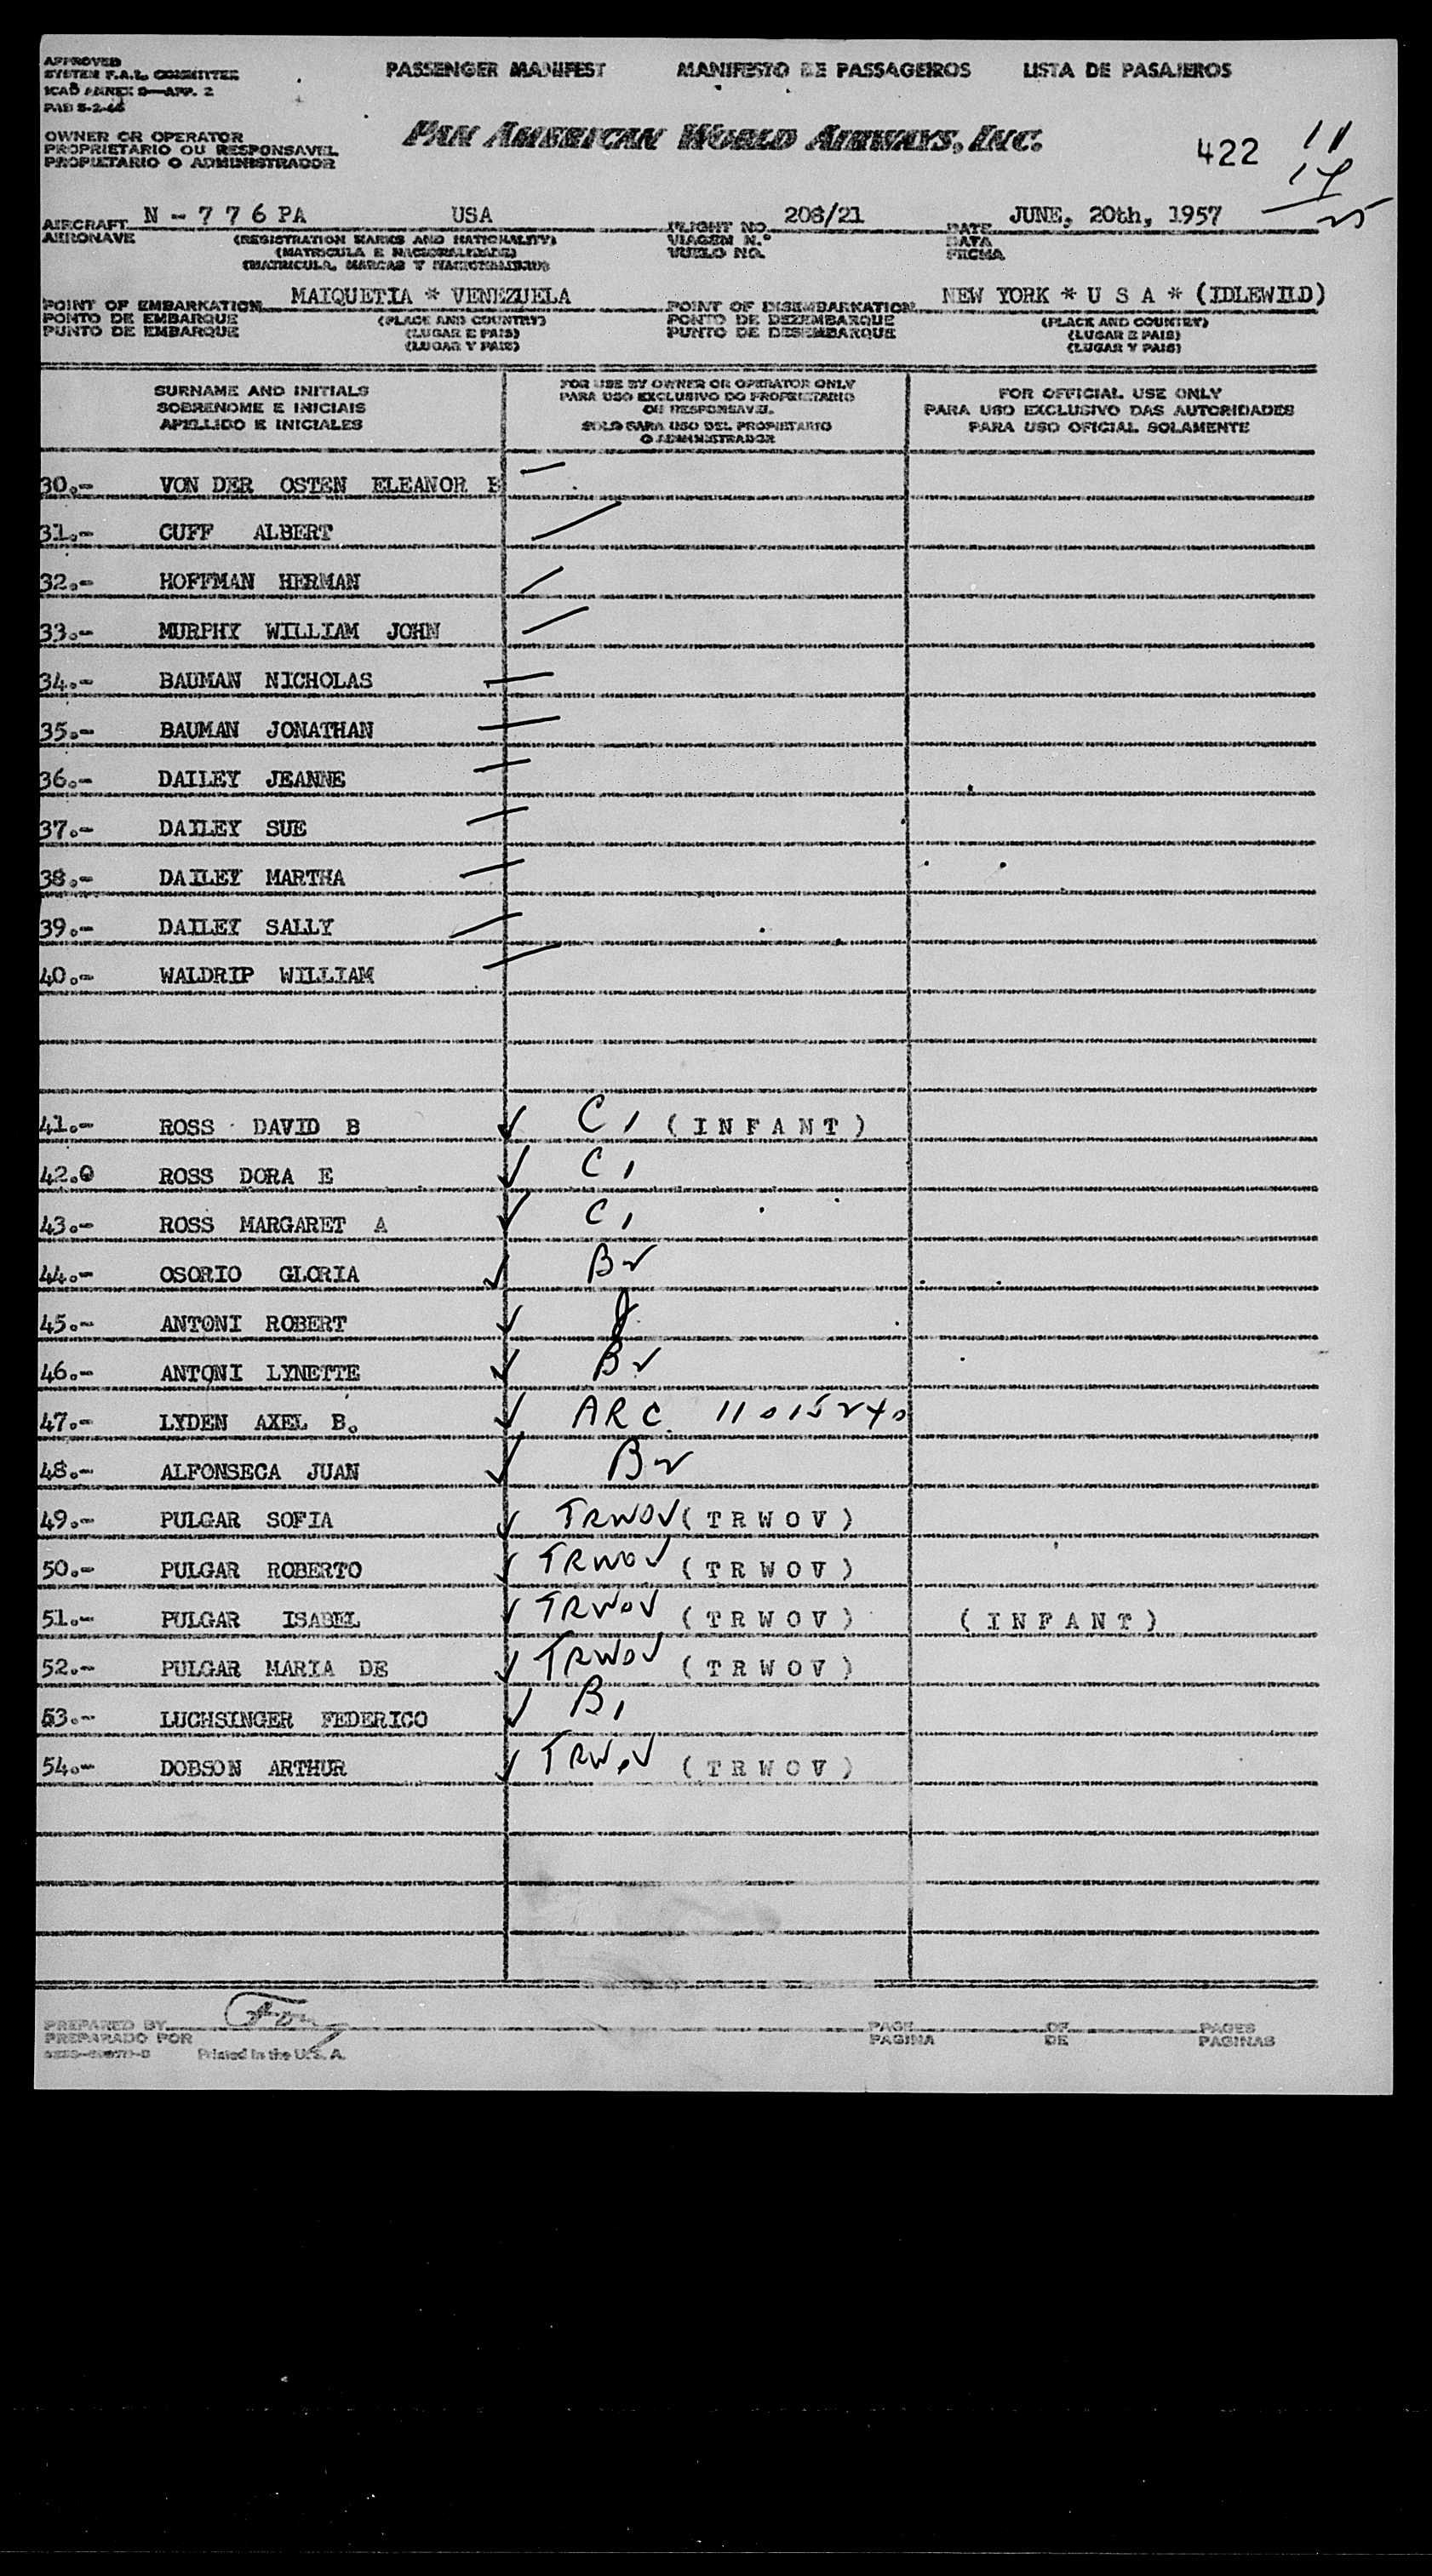 APPROVED
SYSTEM F.A.L. COMMITTEE
ICAO ANNEX 9—APP. 2
PASSENGER MANIFEST MANIFESTO DE PASSAGEIROS LISTA DE PASAJEROS
OWNER OR OPERATOR
PROPRIETARIO OU RESPONSAVEL
PROPIETARIO O ADMINISTRADOR
PAN AMERICAN WORLD AIRWAYS, INC.
422 11
14
25
AIRCRAFT N - 7 7 6 PA USA FLIGHT NO. 208/21 DATE JUNE, 20th, 1957
AERONAVE (REGISTRATION MARKS AND NATIONALITY) VIAGEM N.° DATA
(MATRICULA E NACIONALIDADE) VUELO NO. FECHA
(MATRICULA, MARCAS Y NACIONALIDAD)
POINT OF EMBARKATION MAIQUETIA * VENEZUELA POINT OF DISEMBARKATION NEW YORK * U S A * (IDLEWILD)
PONTO DE EMBARQUE (PLACE AND COUNTRY) PONTO DE DEZEMBARQUE (PLACE AND COUNTRY)
PUNTO DE EMBARQUE (LUGAR E PAIS) PUNTO DE DESEMBARQUE (LUGAR E PAIS)
(LUGAR Y PAIS) (LUGAR Y PAIS)
SURNAME AND INITIALS
SOBRENOME E INICIAIS
APELLIDO E INICIALES
FOR USE BY OWNER OR OPERATOR ONLY
PARA USO EXCLUSIVO DO PROPRIETARIO
OU RESPONSAVEL
SOLO PARA USO DEL PROPIETARIO
O ADMINISTRADOR
FOR OFFICIAL USE ONLY
PARA USO EXCLUSIVO DAS AUTORIDADES
PARA USO OFICIAL SOLAMENTE
30.- VON DER OSTEN ELEANOR
31.- CUFF ALBERT
32.- HOFFMAN HERMAN
33.- MURPHY WILLIAM JOHN
34.- BAUMAN NICHOLAS
35.- BAUMAN JONATHAN
36.- DAILEY JEANNE
37.- DAILEY SUE
38.- DAILEY MARTHA
39.- DAILEY SALLY
40.- WALDRIP WILLIAM
41.- ROSS DAVID B ✓ C1 ( I N F A N T )
42.0 ROSS DORA E ✓ C1
43.- ROSS MARGARET A ✓ C1
44.- OSORIO GLORIA ✓ B2
45.- ANTONI ROBERT ✓
46.- ANTONI LYNETTE ✓ B2
47.- LYDEN AXEL B. ✓ ARC 11015240
48.- ALFONSECA JUAN ✓ B2
49.- PULGAR SOFIA ✓ TRWOV ( T R W O V )
50.- PULGAR ROBERTO ✓ TRWOV ( T R W O V )
51.- PULGAR ISABEL ✓ TRWOV ( T R W O V ) ( I N F A N T )
52.- PULGAR MARIA DE ✓ TRWOV ( T R W O V )
53.- LUCHSINGER FEDERICO ✓ B1
54.- DOBSON ARTHUR ✓ TRWOV ( T R W O V )
PREPARED BY PAGE OF PAGES
PREPARADO POR PAGINA DE PAGINAS
Printed in the U. S. A.